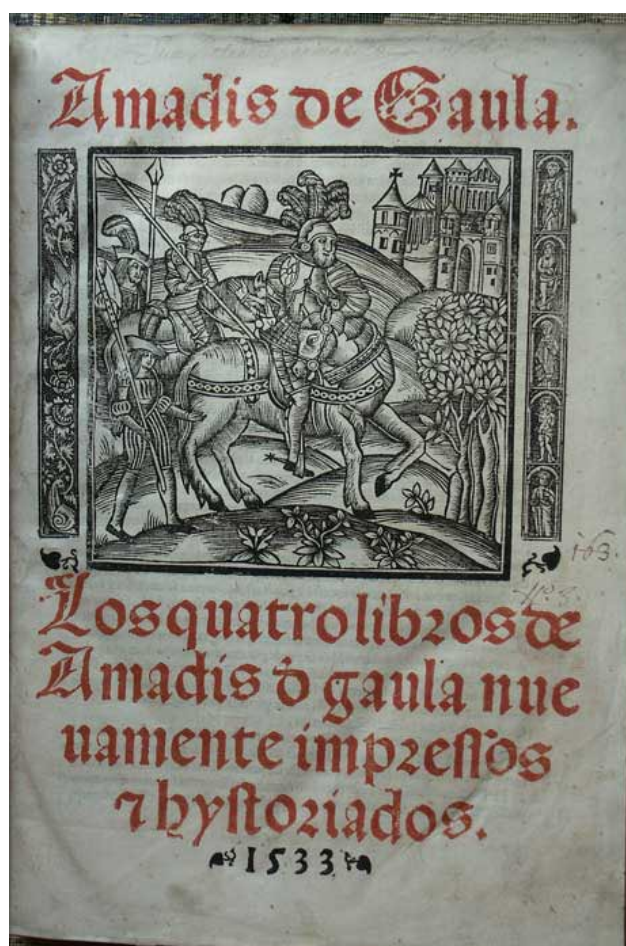 Amadis de Gaula.
Los quatro libros de
Amadis d̄ gaula nue
uamente impressos
⁊ hystoriados.
1533
163.